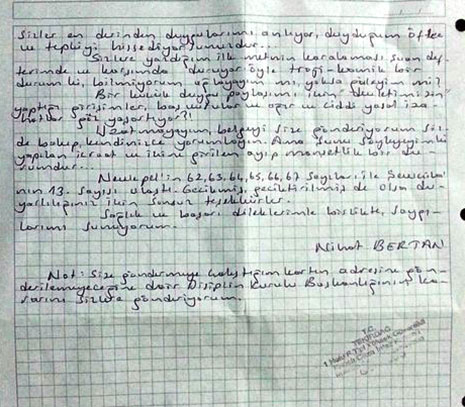 Sizler en derinden duygularımı anlıyor, duyduğum öfke
ve tepkiyi hissediyorsunuzdur...
Sizlere yazdığım ilk metnin karalaması şuan def-
terimde ve karşımda duruyor öyle traji-komik bir
durum ki, bilmiyorum ağlayayım mı, yoksa güleyim mi?
Bir küçük duygu paylaşımı için "devletimizin"
yaptığı girişimler, başvurular ve ağır ve ciddi yasal iza-
hatlar göz yaşartıyor?!
Uzatmayayım, belgeyi size gönderiyorum siz-
de bakıp, kendinizce yorumlayın. Ama şunu söyleyeyim ki
yapılan icraat ve içine girilen ayıp manşetlik bir du-
rumdur...
Newepel'in 62, 63, 64, 65, 66, 67 Sayıları, ile
'nın 13. Sayısı ulaştı. Gecikmiş, geciktirilmiş de olsa du-
yarlılığınız için sonsuz teşekkürler.
Sağlık ve başarı dileklerimle birlikte, saygı-
larımı sunuyorum.
Nihat BERTAN
Not: Size göndermeye çalıştığım kartın adresine gön-
derilemeyeceğine dair Disiplin Kurulu Başkanlığının ka-
rarını sizlere gönderiyorum.
T.C.
TEKİRDAĞ